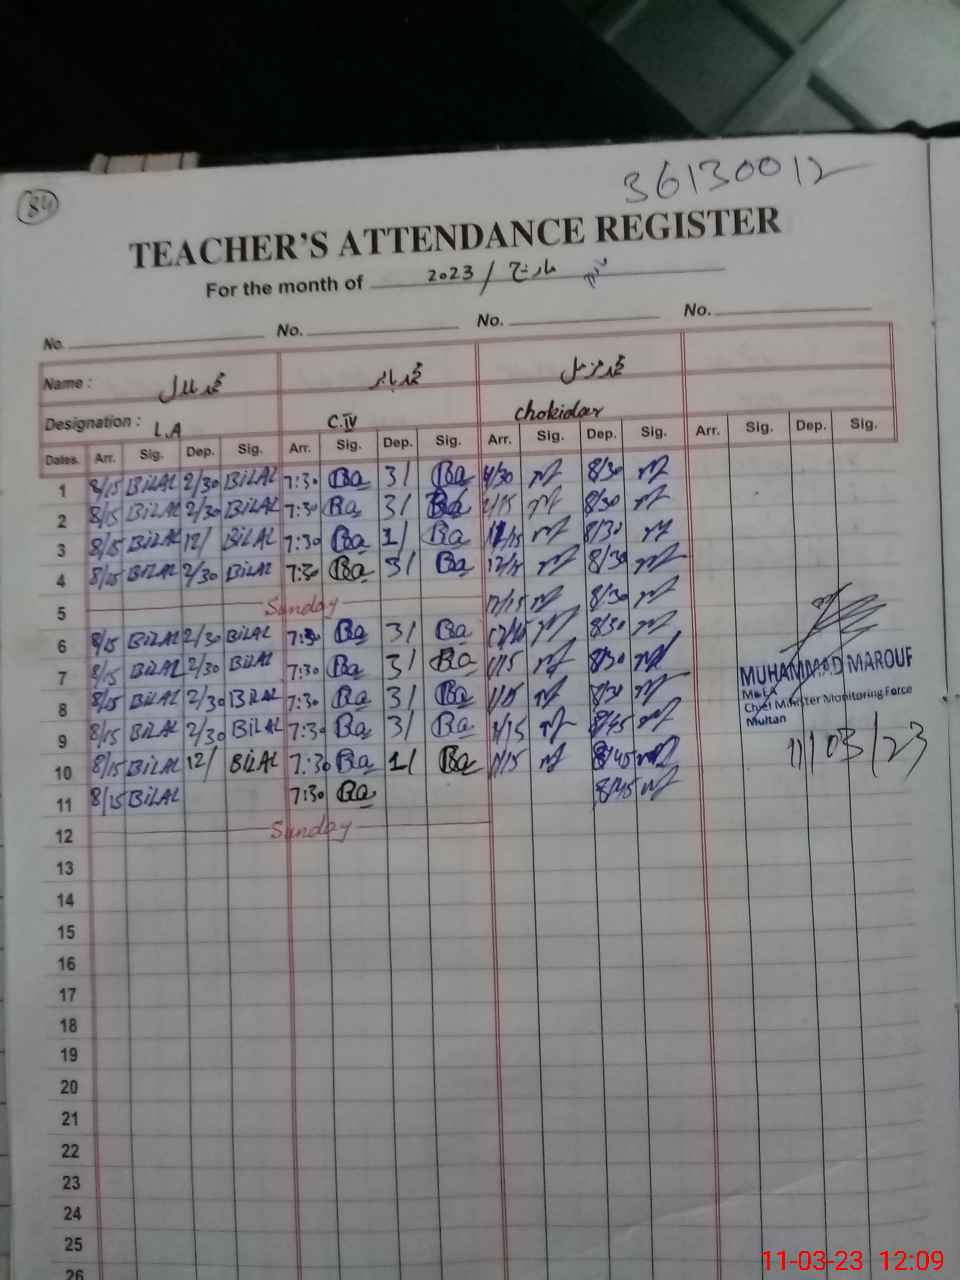 84
36130012
TEACHER'S ATTENDANCE REGISTER
For the month of 2023 / مارچ
No. No. No. No.
Name : محمد بلال محمد بابر محمد مزمل
Designation : L.A C.IV Chokidar
Dates. Arr. Sig. Dep. Sig. Arr. Sig. Dep. Sig. Arr. Sig. Dep. Sig. Arr. Sig. Dep. Sig.
1 8/15 BiLAL 2/30 BiLAL 7:30 Ba 3/ Ba 8/30
2 8/15 BiLAL 2/30 BiLAL 7:30 Ba 3/ Ba 8/30
3 8/15 BiLAL 12/ BiLAL 7:30 Ba 1/ Ba 8/30
4 8/15 BiLAL 2/30 BiLAL 7:30 Ba 3/ Ba 8/30
5 Sunday 12/15 8/30
6 8/15 BiLAL 2/30 BiLAL 7:30 Ba 3/ Ba 8/30
7 8/15 BiLAL 2/30 BiLAL 7:30 Ba 3/ Ba 1/15 8/30
8 8/15 BiLAL 2/30 BiLAL 7:30 Ba 3/ Ba 1/15 8/30
9 8/15 BiLAL 2/30 BiLAL 7:30 Ba 3/ Ba 1/15 8/45
10 8/15 BiLAL 12/ BiLAL 7:30 Ba 1/ Ba 1/15 8/45
11 8/15 BiLAL 7:30 Ba 8/45
12 Sunday
13
14
15
16
17
18
19
20
21
22
23
24
25
26
MUHAMMAD MAROUF
M&EA
Chief Minister Monitoring Force
Multan
11/03/23
11-03-23 12:09